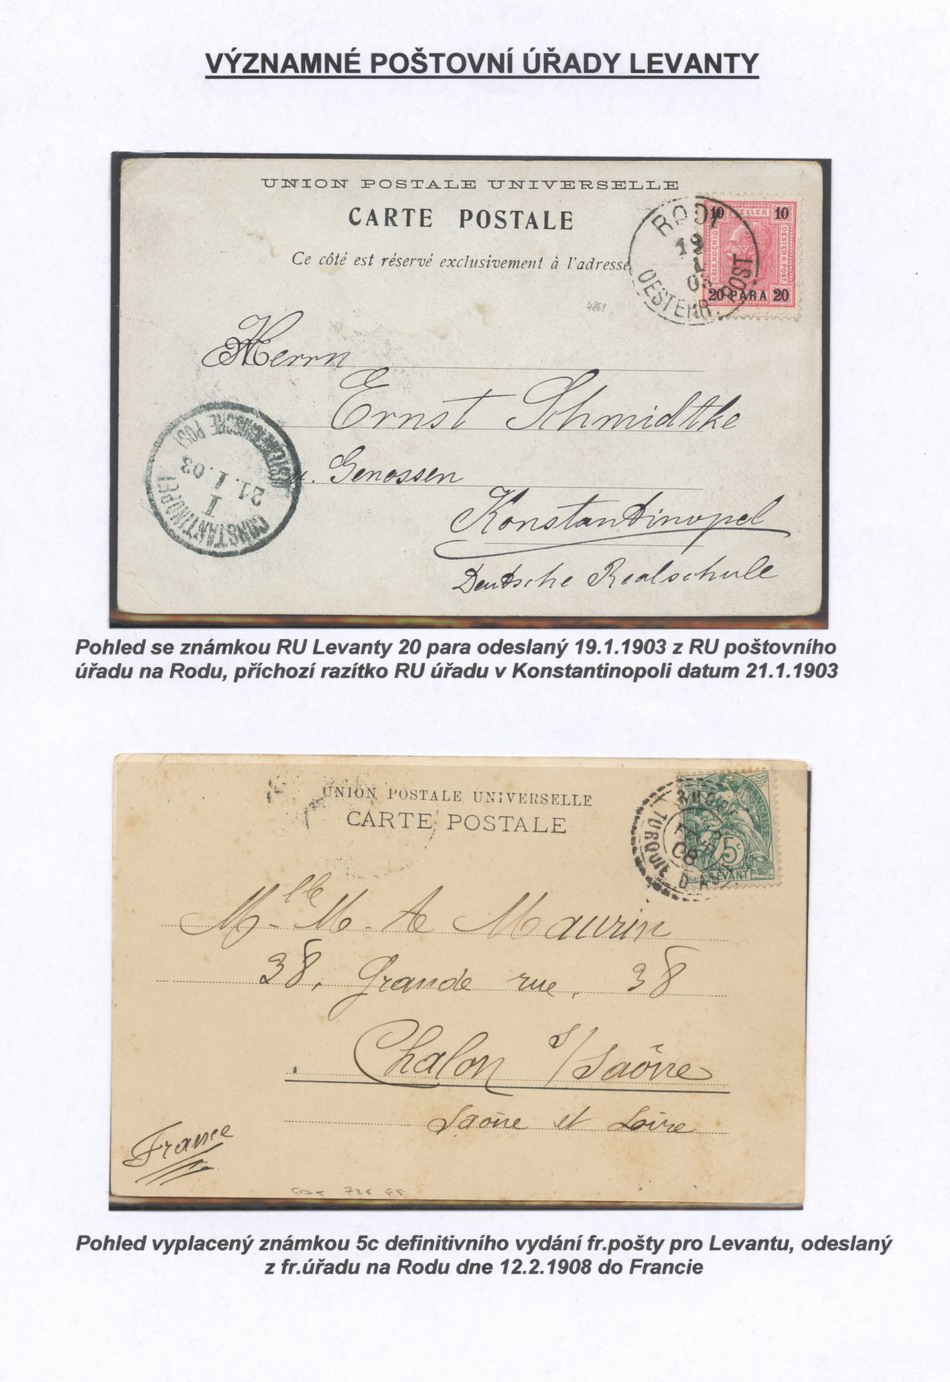 VÝZNAMNÉ POŠTOVNÍ ÚŘADY LEVANTY
UNION POSTALE UNIVERSELLE
CARTE POSTALE
Ce côté est réservé exclusivement à l'adresse
RODI
19
1
03
OESTERR. POST
10 10
20 PARA 20
4861
Herrn
Ernst Schmidtke
u. Genossen
Konstantinopel
Deutsche Realschule
CONSTANTINOPEL
I
21.I.03
OESTERREICHISCHE POST
Pohled se známkou RU Levanty 20 para odeslaný 19.1.1903 z RU poštovního
úřadu na Rodu, příchozí razítko RU úřadu v Konstantinopoli datum 21.1.1903
UNION POSTALE UNIVERSELLE
CARTE POSTALE
TURQUIE D'ASIE
08
5c
LEVANT
Mlle M. A Maurin
38, Grande rue, 38
Chalon s/Saône
Saône et Loire
France
Pohled vyplacený známkou 5c definitivního vydání fr.pošty pro Levantu, odeslaný
z fr.úřadu na Rodu dne 12.2.1908 do Francie